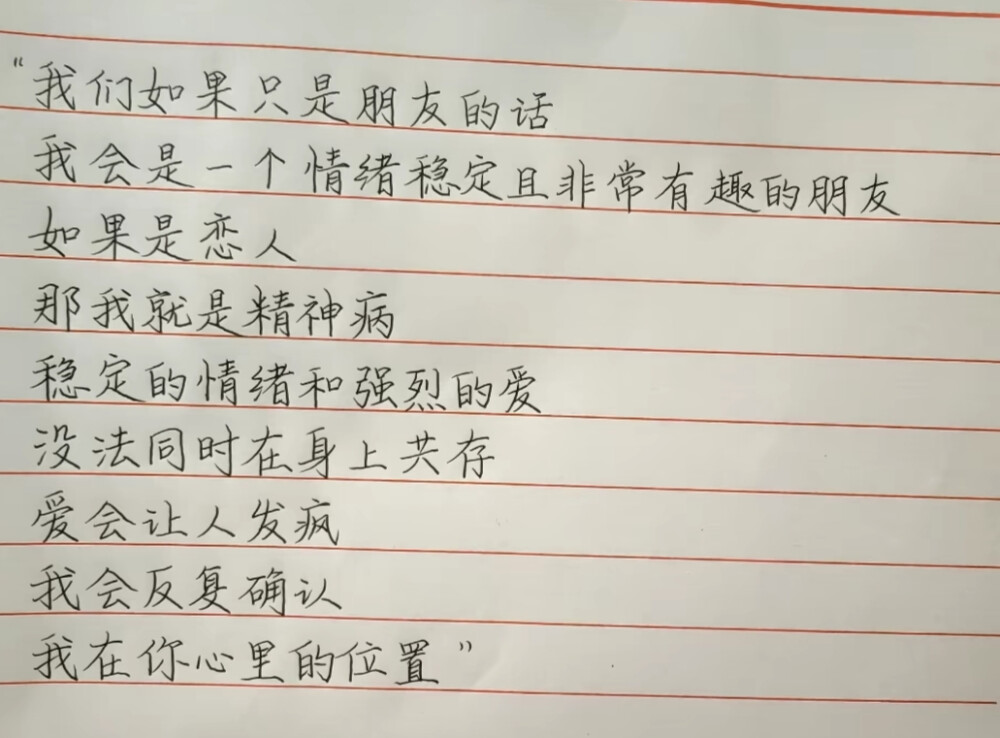 “我们如果只是朋友的话
我会是一个情绪稳定且非常有趣的朋友
如果是恋人
那我就是精神病
稳定的情绪和强烈的爱
没法同时在身上共存
爱会让人发疯
我会反复确认
我在你心里的位置”